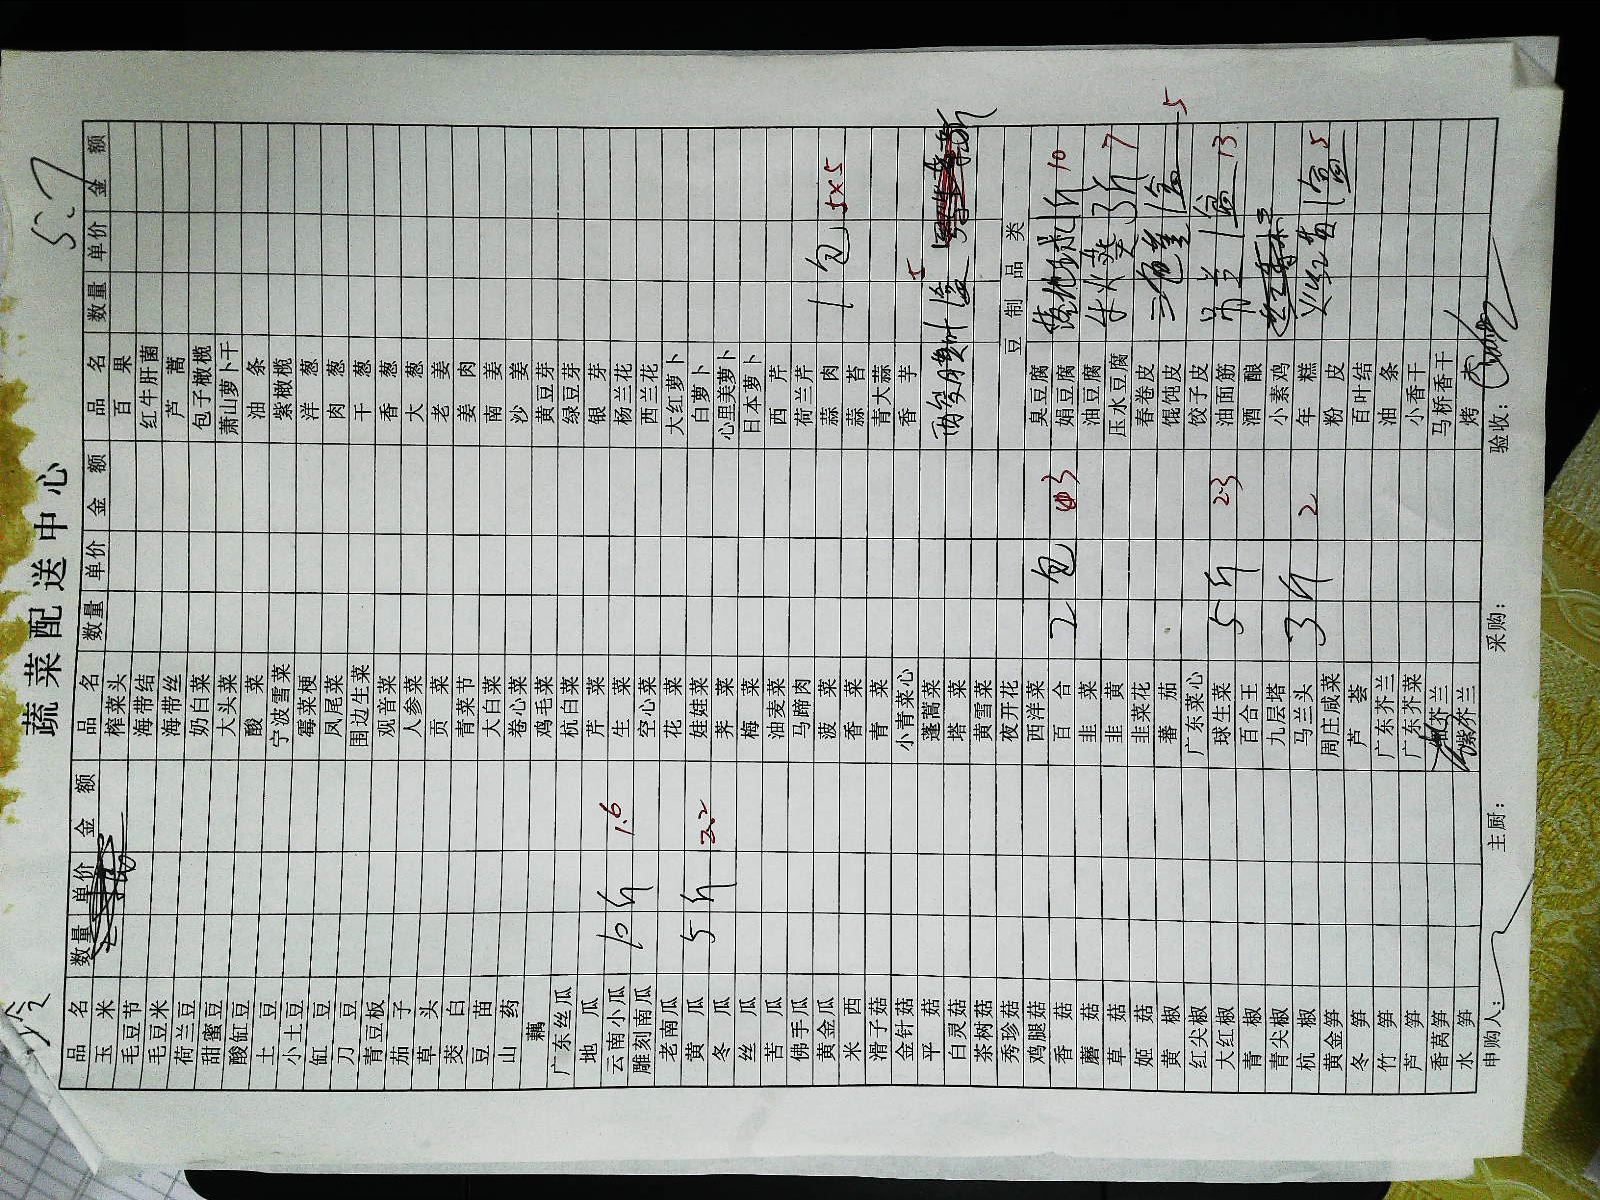 冷
蔬菜配送中心
5.7
品名 数量 单价 金额 品名 数量 单价 金额 品名 数量 单价 金额
玉米 榨菜头 百果
毛豆节 海带结 红牛肝菌
毛豆米 海带丝 芦蒿
荷兰豆 奶白菜 包子橄榄
甜蜜豆 大头菜 萧山萝卜干
酸缸豆 酸菜 油条
土豆 宁波雪菜 紫橄榄
小土豆 霉菜梗 洋葱
缸豆 凤尾菜 肉葱
刀豆 围边生菜 干葱
青豆板 观音菜 香葱
茄子 人参菜 大葱
草头 贡菜 老姜
茭白 青菜节 姜肉
豆苗 大白菜 南姜
山药 卷心菜 沙姜
藕 鸡毛菜 黄豆芽
广东丝瓜 杭白菜 绿豆芽
地瓜 芹菜 银芽
云南小瓜 10斤 1.6 生菜 杨兰花
雕刻南瓜 空心菜 西兰花
老南瓜 花菜 大红萝卜
黄瓜 5斤 2.2 娃娃菜 白萝卜
冬瓜 荠菜 心里美萝卜
丝瓜 梅菜 日本萝卜
苦瓜 油麦菜 西芹
佛手瓜 马蹄肉 荷兰芹
黄金瓜 菠菜 蒜肉 1包 5x5
米西 香菜 蒜苔
滑子菇 青菜 青大蒜
金针菇 小青菜心 香芋
平菇 蓬蒿菜
白灵菇 塔菜
茶树菇 黄雪菜
秀珍菇 夜开花 豆制品类
鸡腿菇 西洋菜 臭豆腐
香菇 百合 2包 娟豆腐 10
蘑菇 韭菜 油豆腐
草菇 韭黄 压水豆腐 3斤 7
姬菇 韭菜花 春卷皮
黄椒 蕃茄 馄饨皮 1盒 5
红尖椒 广东菜心 饺子皮
大红椒 球生菜 5斤 23 油面筋 1盒 13
青椒 百合王 酒酿
青尖椒 九层塔 小素鸡
杭椒 马兰头 3斤 2 年糕 1盒 5
黄金笋 周庄咸菜 粉皮
冬笋 芦荟 百叶结
竹笋 广东芥兰 油条
芦笋 广东芥菜 小香干
香莴笋 芥兰 马桥香干
水笋 紫芥兰 烤
申购人: 主厨: 采购: 验收: